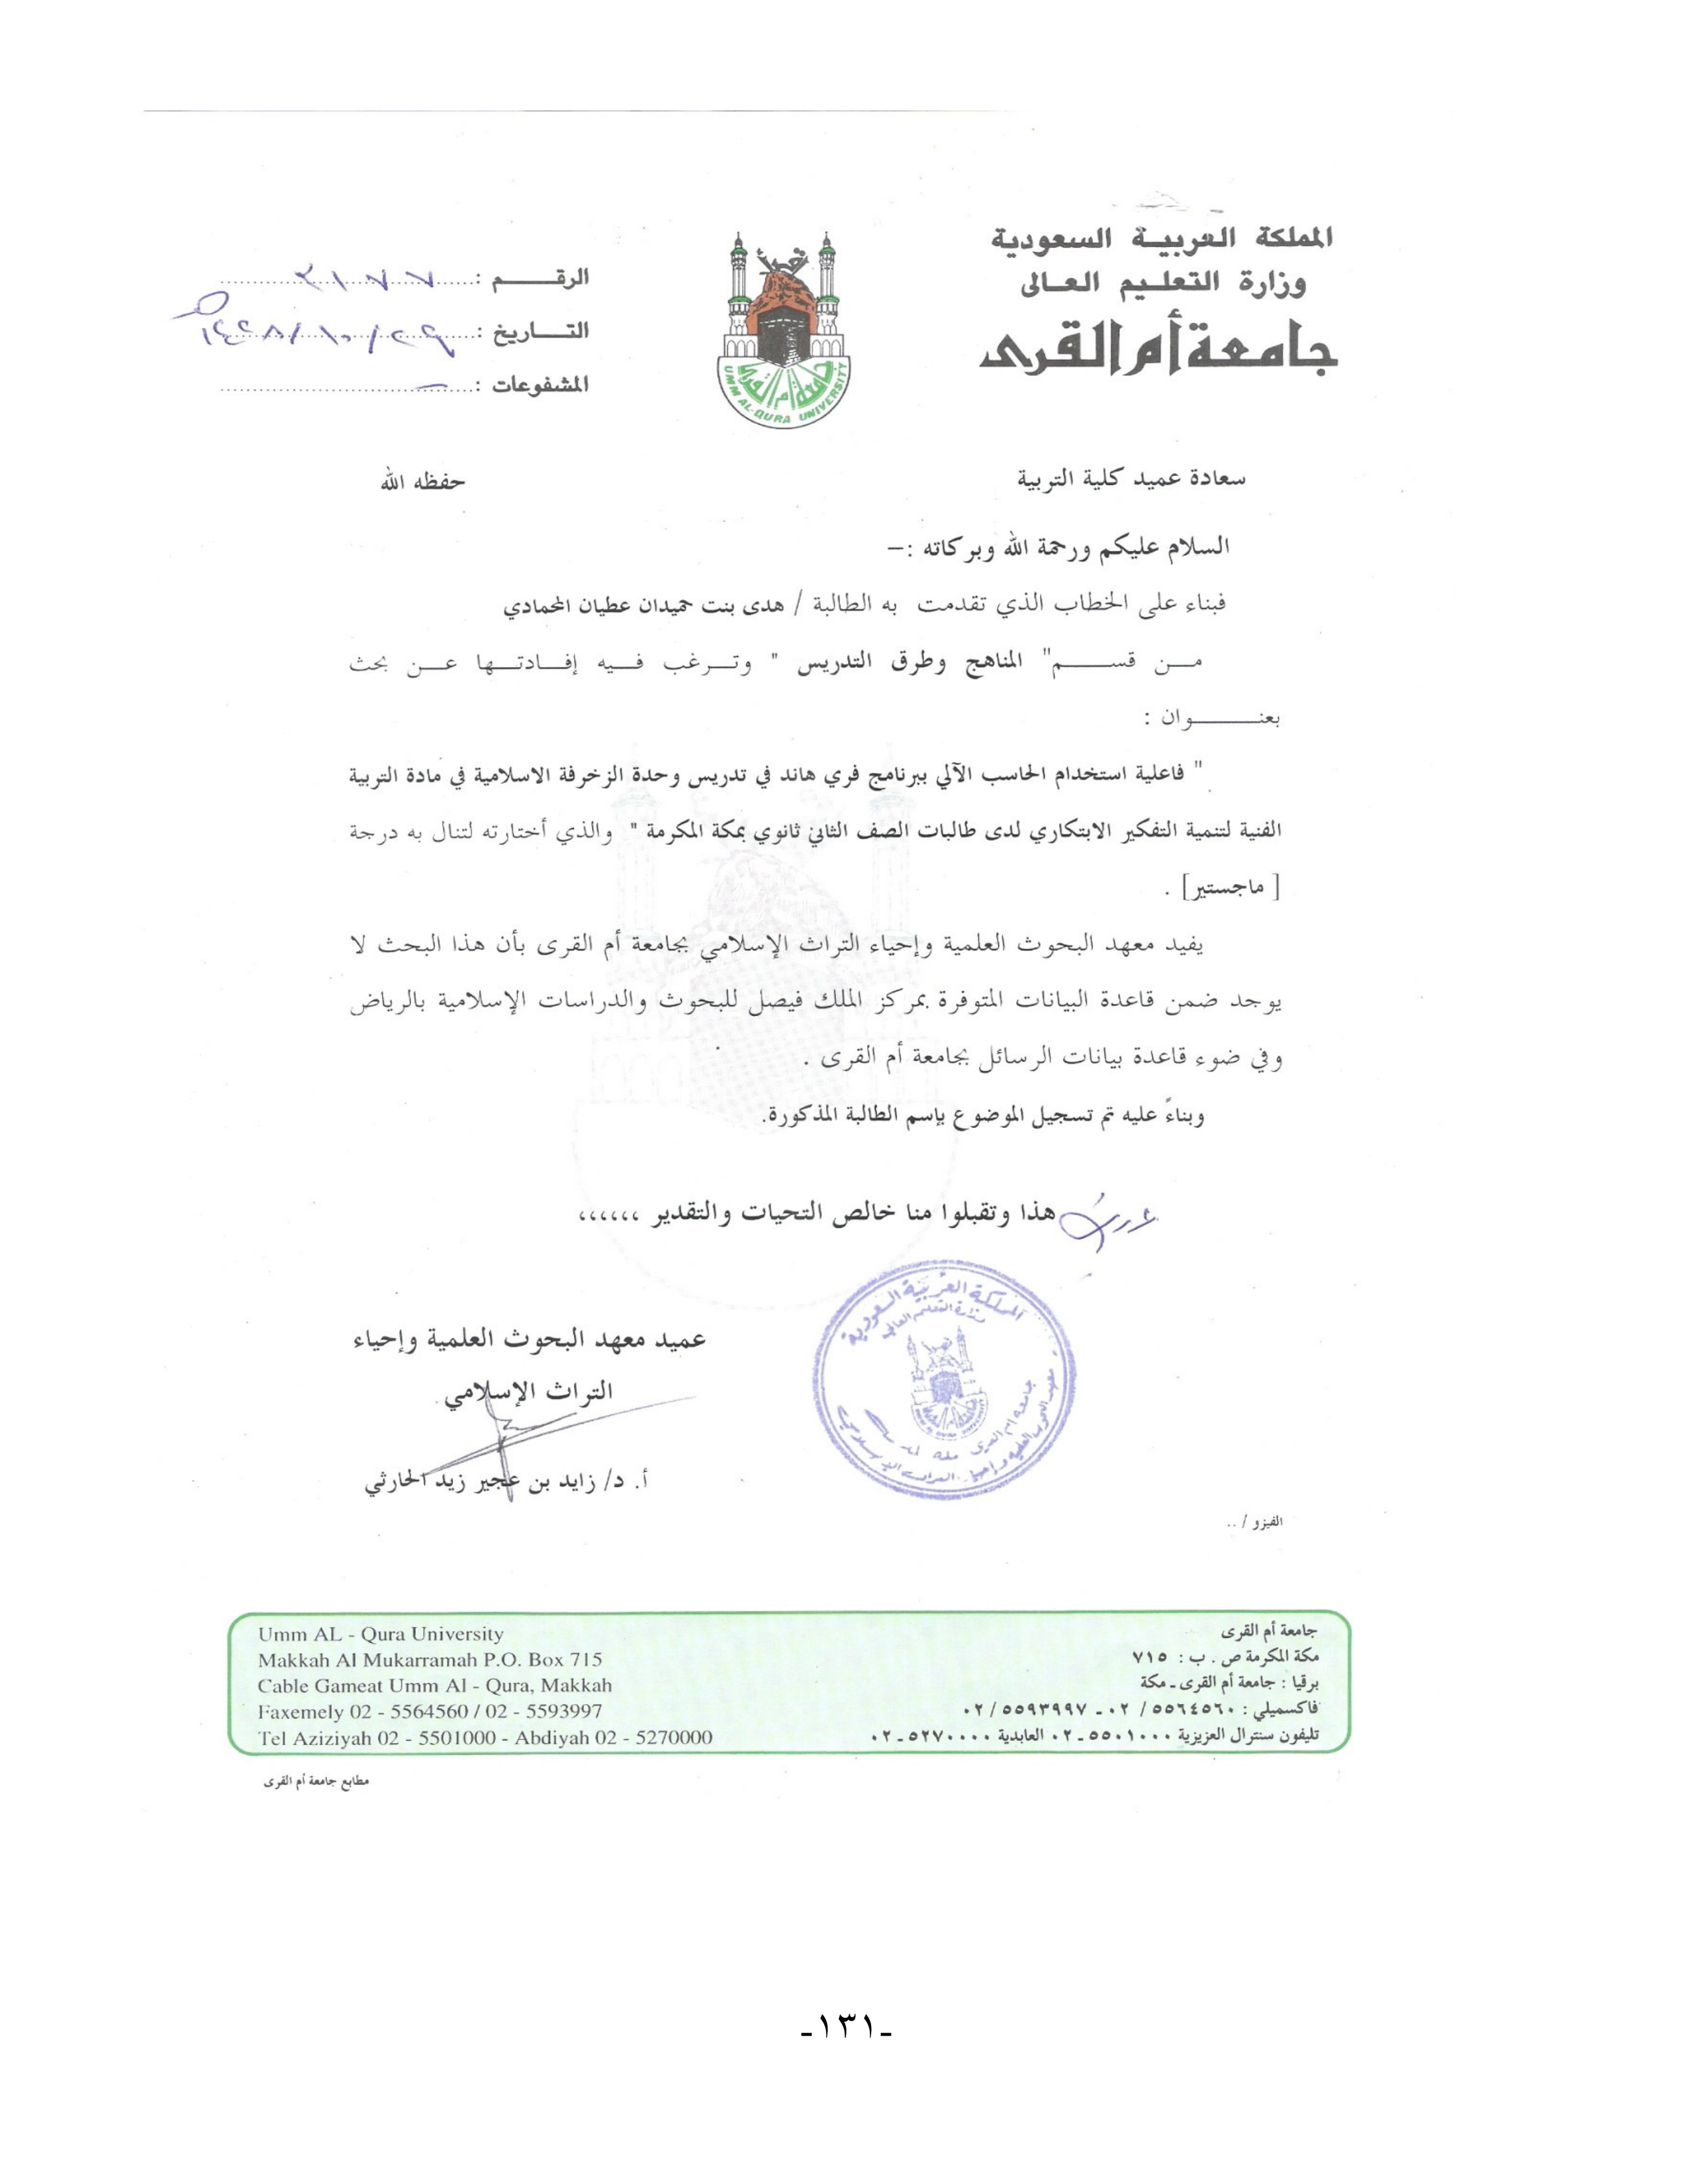 المملكة العربية السعودية
وزارة التعليم العالى
جامعة أم القرى
UMM AL-QURA UNIVERSITY
الرقم :
التاريخ : ١٤٢٨/١٠/٢٩ه
المشفوعات : —
سعادة عميد كلية التربية حفظه الله
السلام عليكم ورحمة الله وبركاته :–
فبناء على الخطاب الذي تقدمت به الطالبة / هدى بنت حميدان عطيان المحمادي
من قسم" المناهج وطرق التدريس " وترغب فيه إفادتها عن بحث
بعنوان :
" فاعلية استخدام الحاسب الآلي ببرنامج فري هاند في تدريس وحدة الزخرفة الاسلامية في مادة التربية
الفنية لتنمية التفكير الابتكاري لدى طالبات الصف الثاني ثانوي بمكة المكرمة " والذي أختارته لتنال به درجة
[ ماجستير] .
يفيد معهد البحوث العلمية وإحياء التراث الإسلامي بجامعة أم القرى بأن هذا البحث لا
يوجد ضمن قاعدة البيانات المتوفرة بمركز الملك فيصل للبحوث والدراسات الإسلامية بالرياض
وفي ضوء قاعدة بيانات الرسائل بجامعة أم القرى .
وبناءً عليه تم تسجيل الموضوع بإسم الطالبة المذكورة.
هذا وتقبلوا منا خالص التحيات والتقدير ،،،،،،
المملكة العربية السعودية
وزارة التعليم العالي
عميد معهد البحوث العلمية وإحياء
التراث الإسلامي
أ. د/ زايد بن عجير زيد الحارثي
الفيزو / ..
جامعة أم القرى
مكة المكرمة ص . ب : ٧١٥
برقيا : جامعة أم القرى ـ مكة
فاكسميلي : ٥٥٦٤٥٦٠ / ٠٢ ـ ٥٥٩٣٩٩٧ / ٠٢
تليفون سنترال العزيزية ٥٥٠١٠٠٠ ـ ٠٢ العابدية ٥٢٧٠٠٠٠ ـ ٠٢
Umm AL - Qura University
Makkah Al Mukarramah P.O. Box 715
Cable Gameat Umm Al - Qura, Makkah
Faxemely 02 - 5564560 / 02 - 5593997
Tel Aziziyah 02 - 5501000 - Abdiyah 02 - 5270000
مطابع جامعة أم القرى
-١٣١-